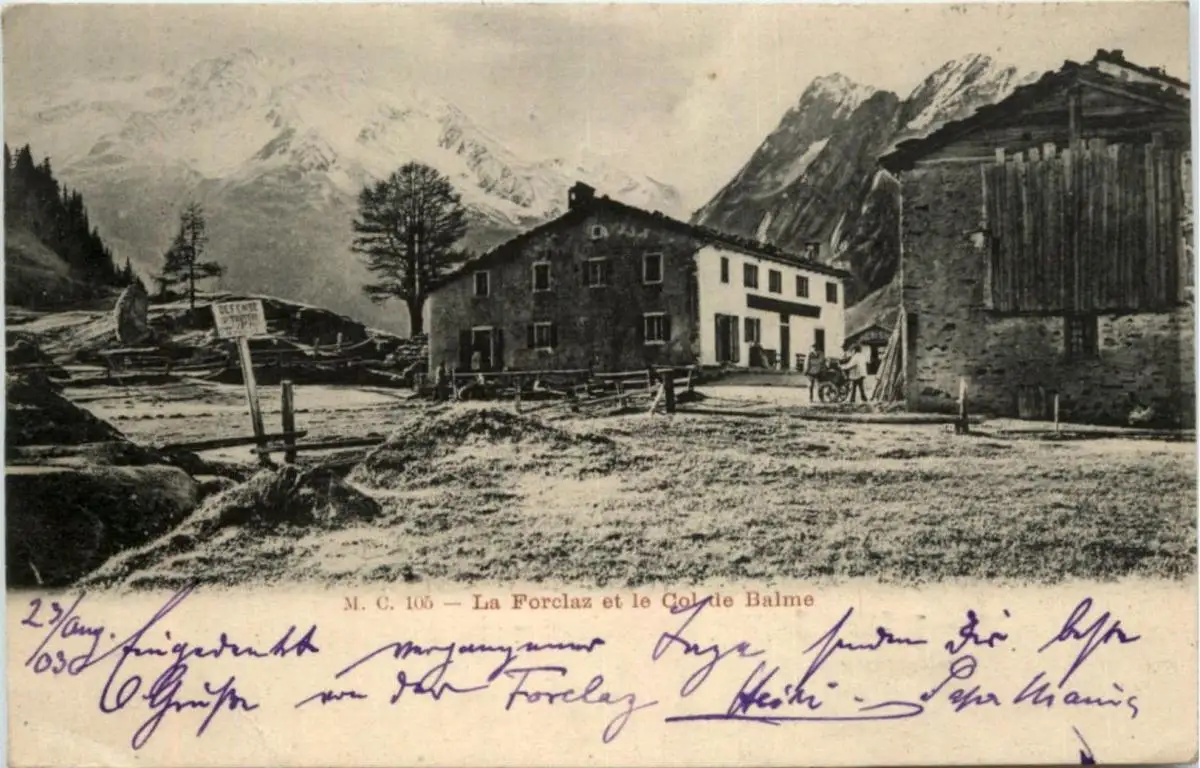 DÉFENSE
M. C. 105 — La Forclaz et le Col de Balme
23/Aug. Eingedenk vergangener Tage senden Dir beste
03 Grüße von der Forclaz Heini - Papa Mama